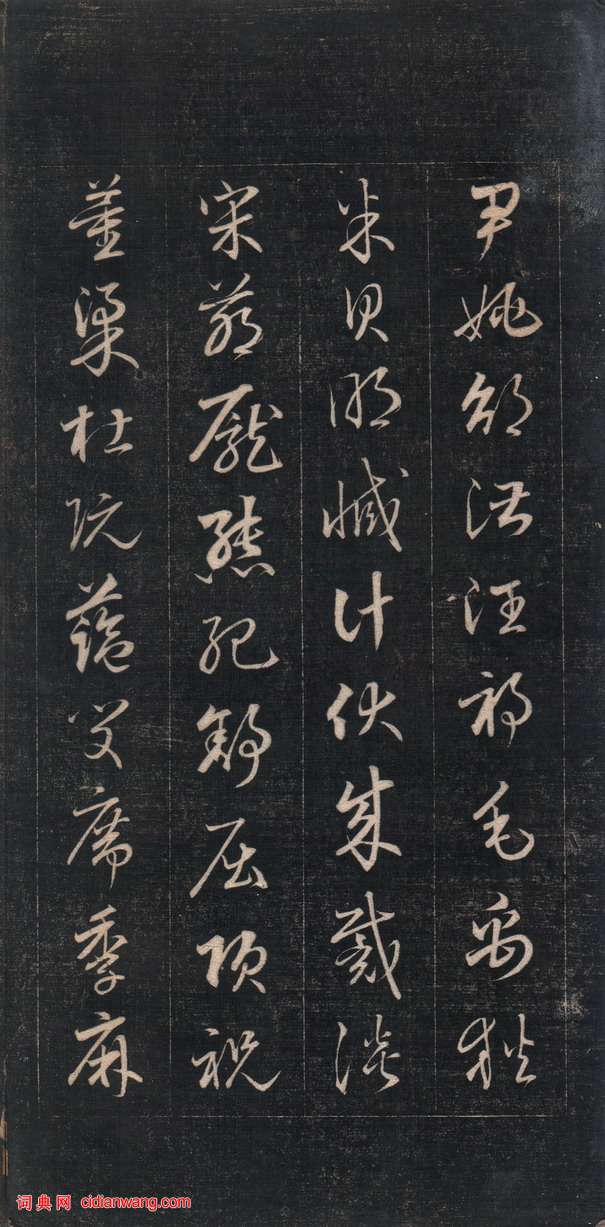 尹姚邵湛汪祁毛禹狄
米貝明臧計伏成戴談
宋茅龐熊紀舒屈項祝
董梁杜阮藍閔席季麻
词典网 cidianwang.com